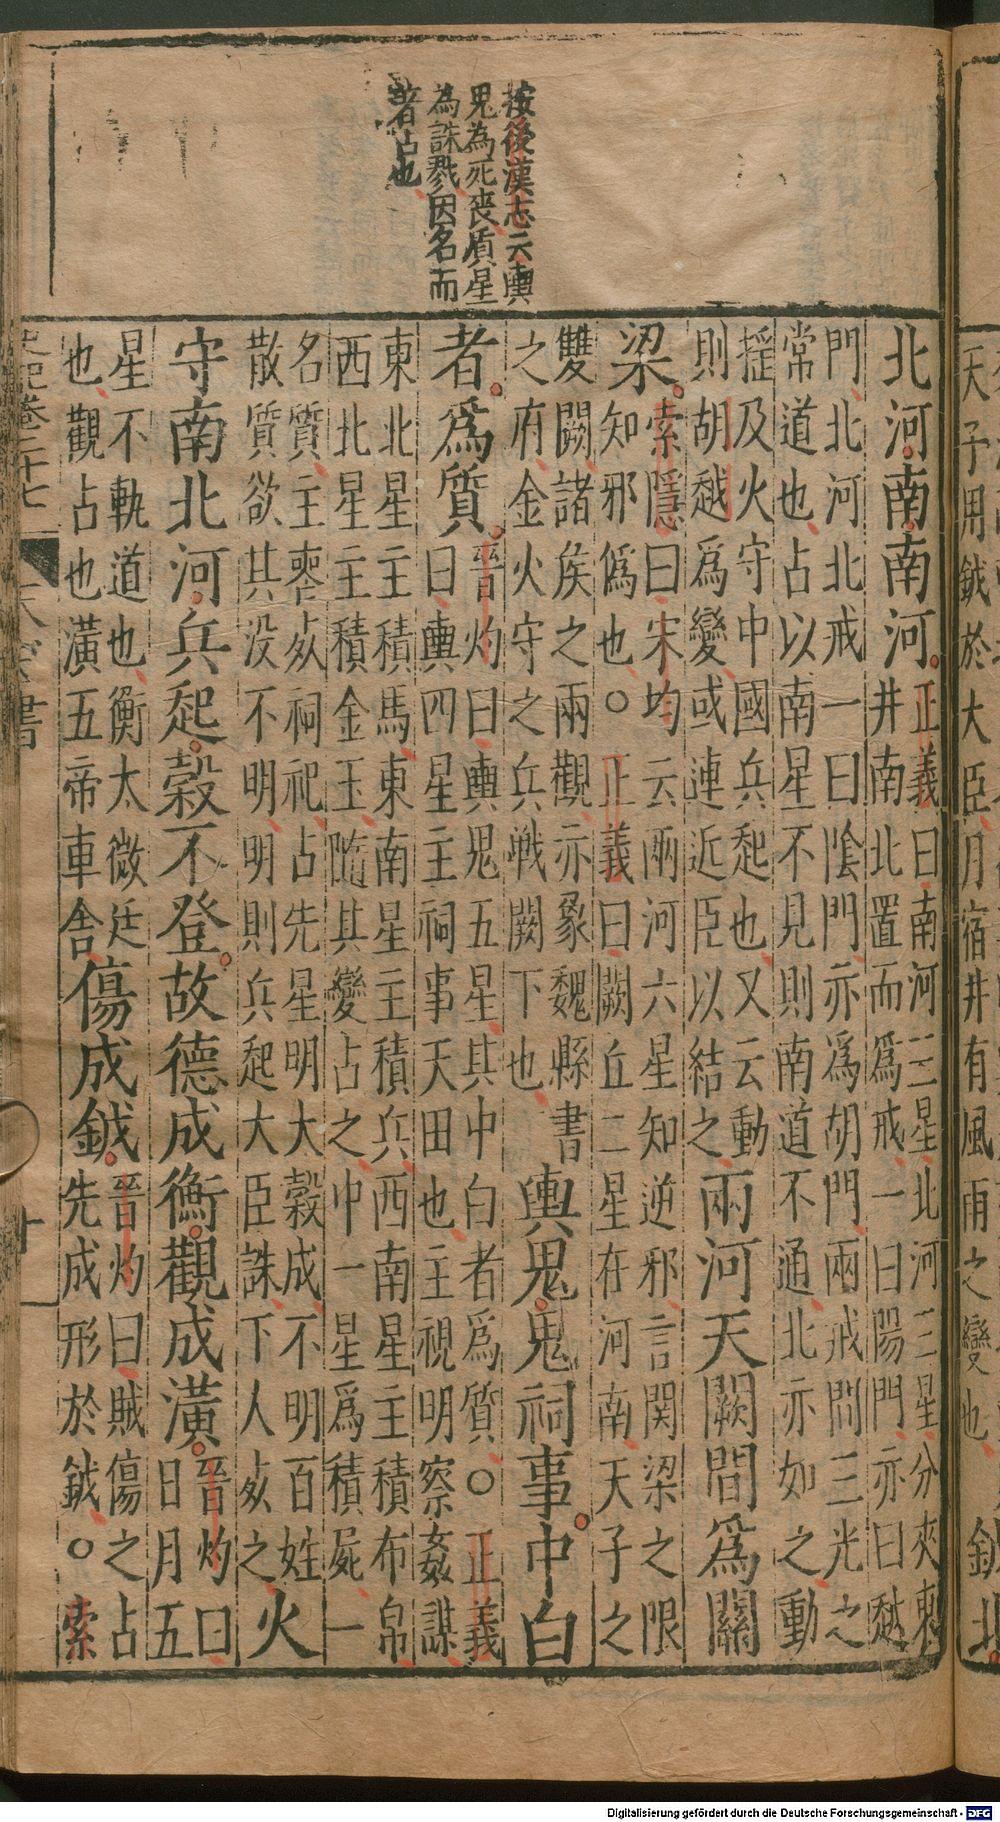 按後漢志云輿
鬼為死喪質星
為誅戮因名而
著占也
北河南南河正義曰南河三星北河三星分夾東
井南北置而爲戒一曰陽門亦曰越
門北河北戒一曰陰門亦爲胡門兩戒間三光之
常道也占以南星不見則南道不通北亦如之動
搖及火守中國兵起也又云動
則胡越爲變或連近臣以結之兩河天闕間爲關
梁索隱曰宋均云兩河六星知逆邪言関梁之限
知邪僞也○正義曰闕丘二星在河南天子之
雙闕諸侯之兩觀亦象魏縣書
之府金火守之兵戦闕下也輿鬼鬼祠事中白
者爲質晉灼曰輿鬼五星其中白者爲質○正義
曰輿四星主祠事天田也主視明察姦謀
東北星主積馬東南星主積兵西南星主積布帛
西北星主積金玉隨其變占之中一星爲積屍一
名質主喪死祠祀占先星明大穀成不明百姓
散質欲其没不明明則兵起大臣誅下人死之火
守南北河兵起穀不登故德成衡觀成潢晉灼曰
日月五
星不軌道也衡太微廷
也觀占也潢五帝車舎傷成鉞晉灼曰賊傷之占
先成形於鉞○索
史記卷二十七
天官書
十
天子用鉞於大臣月宿井有風雨之變也
鉞北
Digitalisierung gefördert durch die Deutsche Forschungsgemeinschaft - DFG